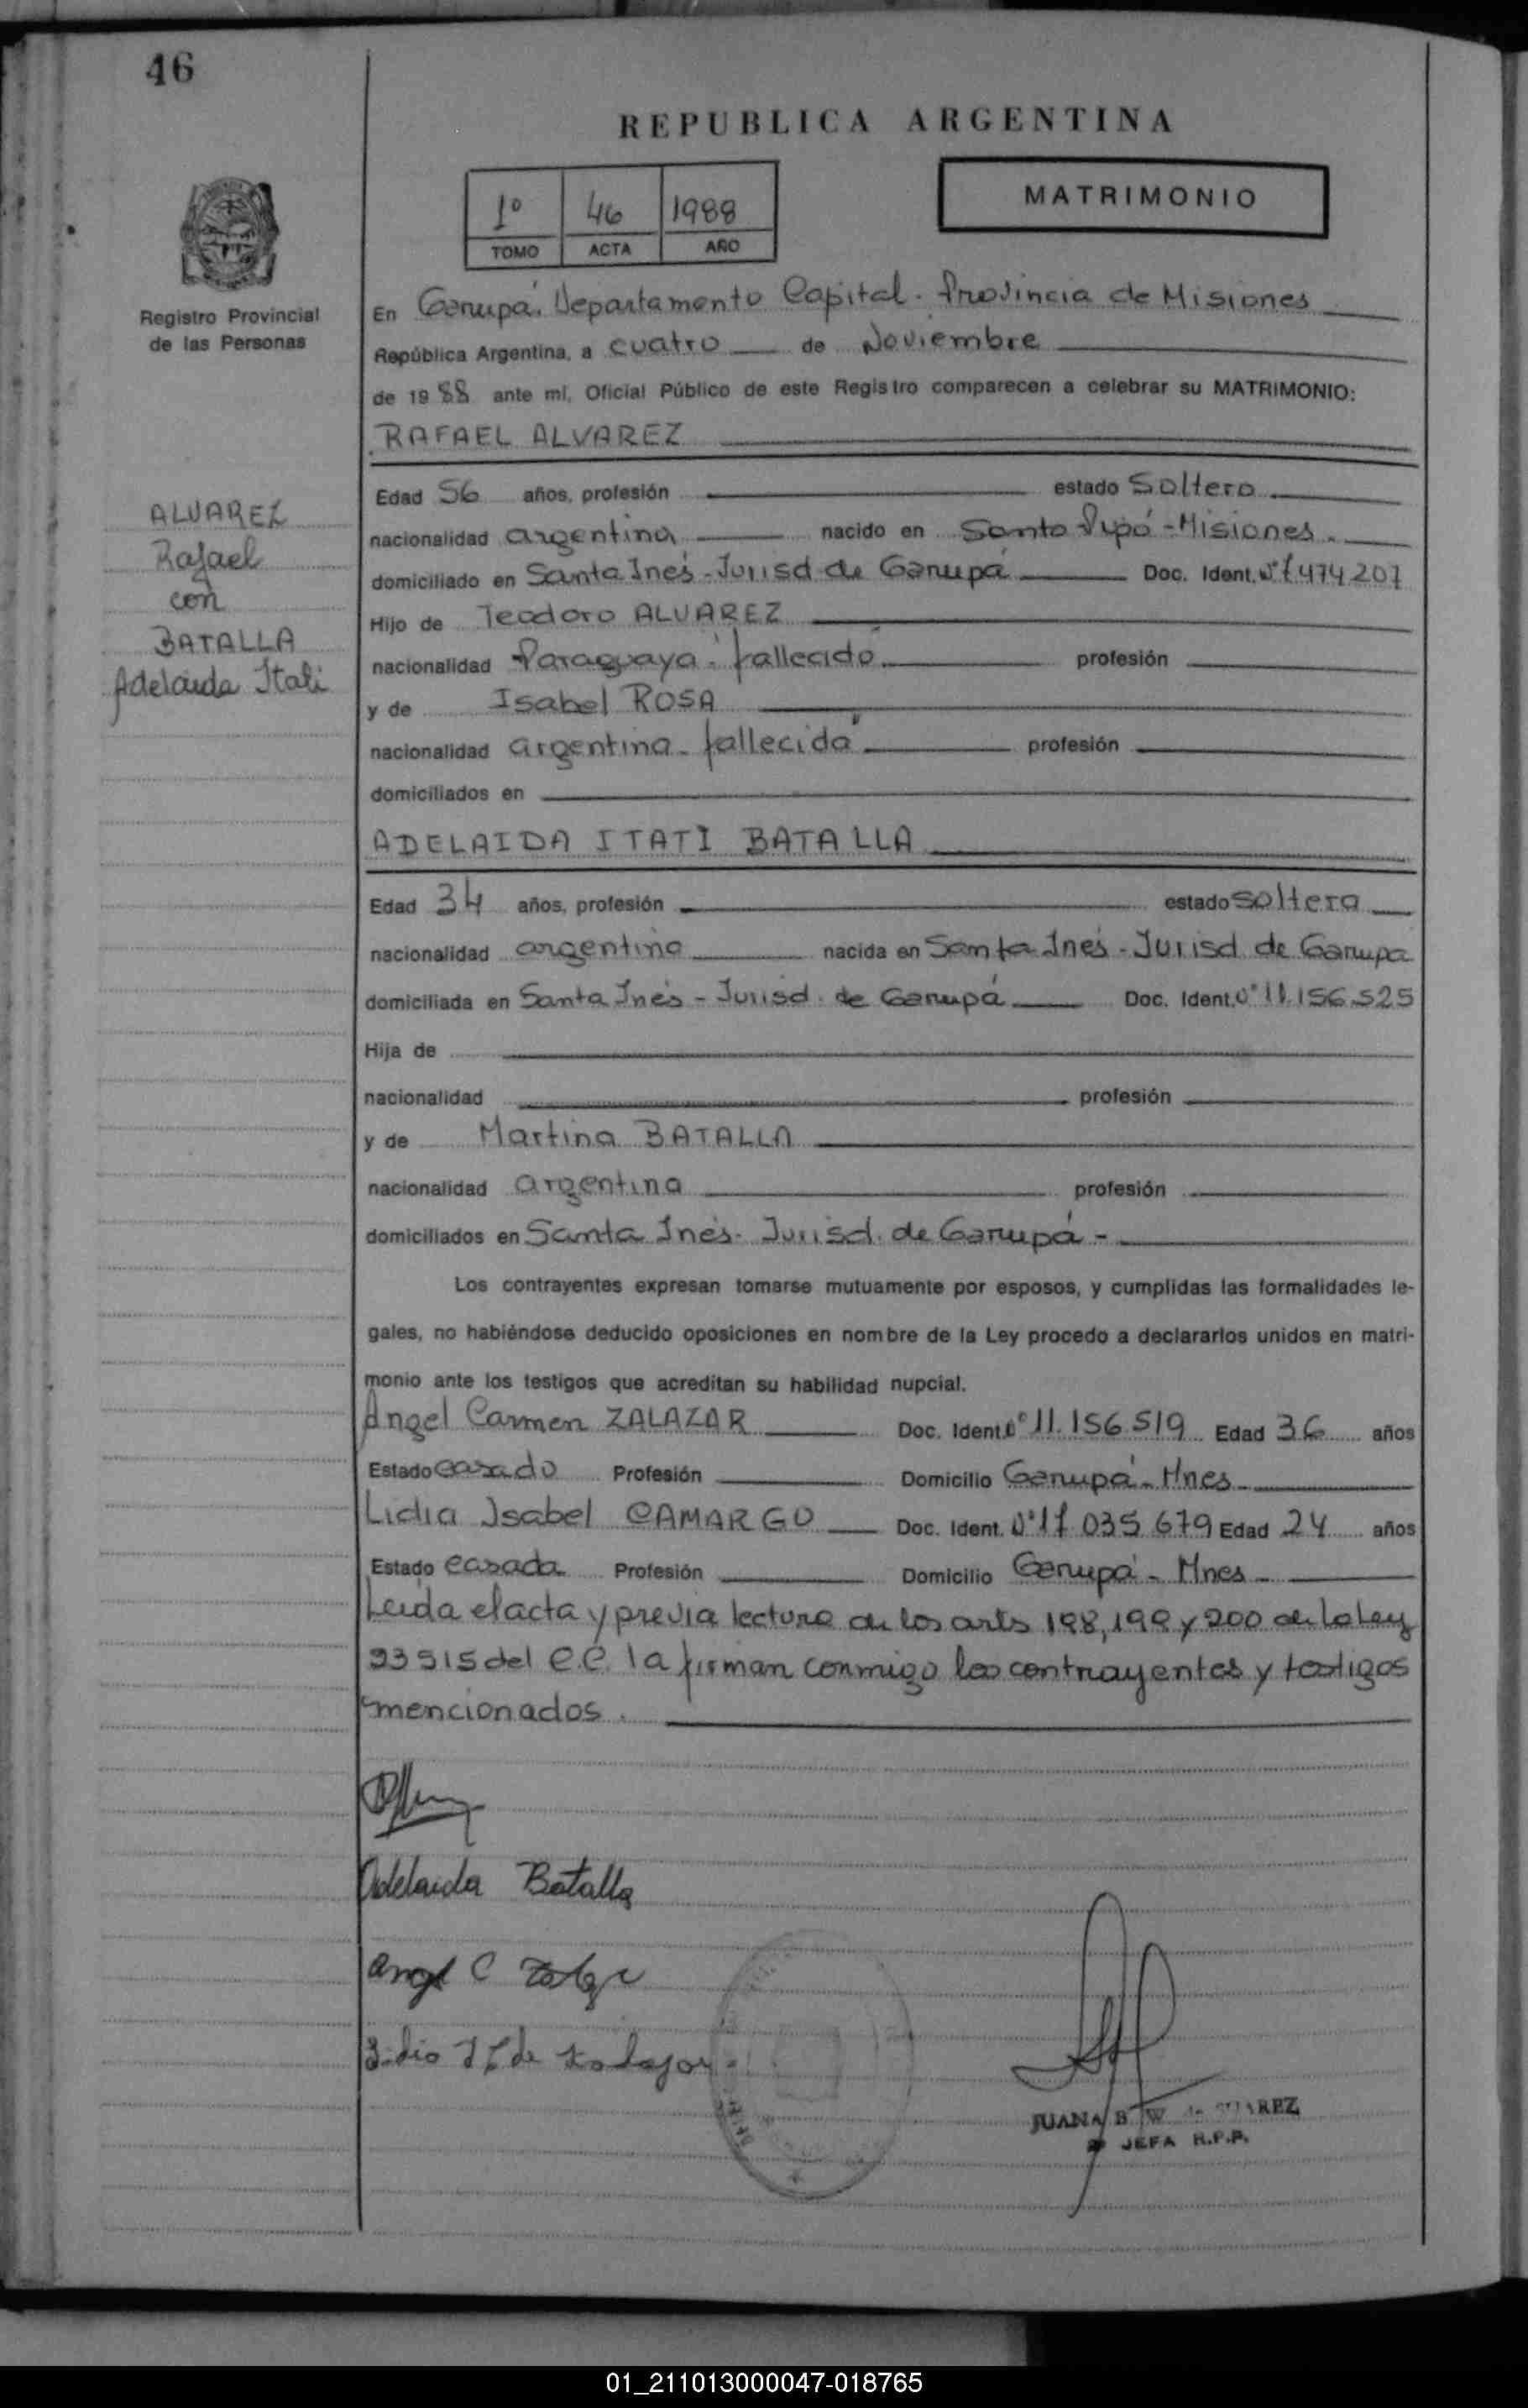 46
REPUBLICA ARGENTINA
1º 46 1988
TOMO ACTA AÑO
MATRIMONIO
Registro Provincial
de las Personas
En Garupá. Departamento Capital. Provincia de Misiones
República Argentina, a cuatro de Noviembre
de 1988 ante mi, Oficial Público de este Registro comparecen a celebrar su MATRIMONIO:
RAFAEL ALVAREZ
ALVAREZ
Rafael
con
BATALLA
Adelaida Itati
Edad 56 años, profesión estado Soltero
nacionalidad argentina nacido en Santo Pipó - Misiones.
domiciliado en Santa Inés - Jurisd de Garupá Doc. Ident. Nº 7.474.207
Hijo de Teodoro ALVAREZ
nacionalidad Paraguaya "fallecido" profesión
y de Isabel ROSA
nacionalidad argentina - fallecida" profesión
domiciliados en
ADELAIDA ITATI BATALLA
Edad 34 años, profesión estado soltera
nacionalidad argentina nacida en Santa Inés - Jurisd. de Garupa
domiciliada en Santa Inés - Jurisd. de Garupá Doc. Ident. Nº 11.156.525
Hija de
nacionalidad profesión
y de Martina BATALLA
nacionalidad argentina profesión
domiciliados en Santa Inés - Jurisd. de Garupá -
Los contrayentes expresan tomarse mutuamente por esposos, y cumplidas las formalidades le-
gales, no habiéndose deducido oposiciones en nombre de la Ley procedo a declararlos unidos en matri-
monio ante los testigos que acreditan su habilidad nupcial.
Angel Carmen ZALAZAR Doc. Ident. Nº 11.156.519 Edad 36 años
Estado casado Profesión Domicilio Garupá - Mnes.
Lidia Isabel CAMARGO Doc. Ident. Nº 17.035.679 Edad 24 años
Estado casada Profesión Domicilio Garupá - Mnes.
Leida el acta y previa lectura de los arts 198, 199 y 200 de la Ley
23515 del C.C. la firman conmigo los contrayentes y testigos
mencionados.
Adelaida Batalla
Angel C
JUANA B. W. de SUAREZ
JEFA R.P.P.
01_211013000047-018765